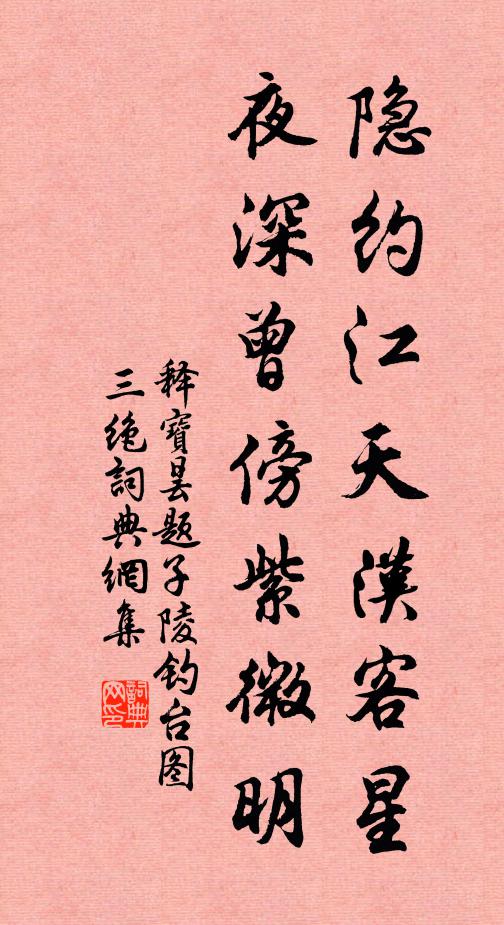 隐约江天漢客星
夜深曾傍紫微明
释寶昙题子陵钓台图
三绝詞典網集
詞典网印